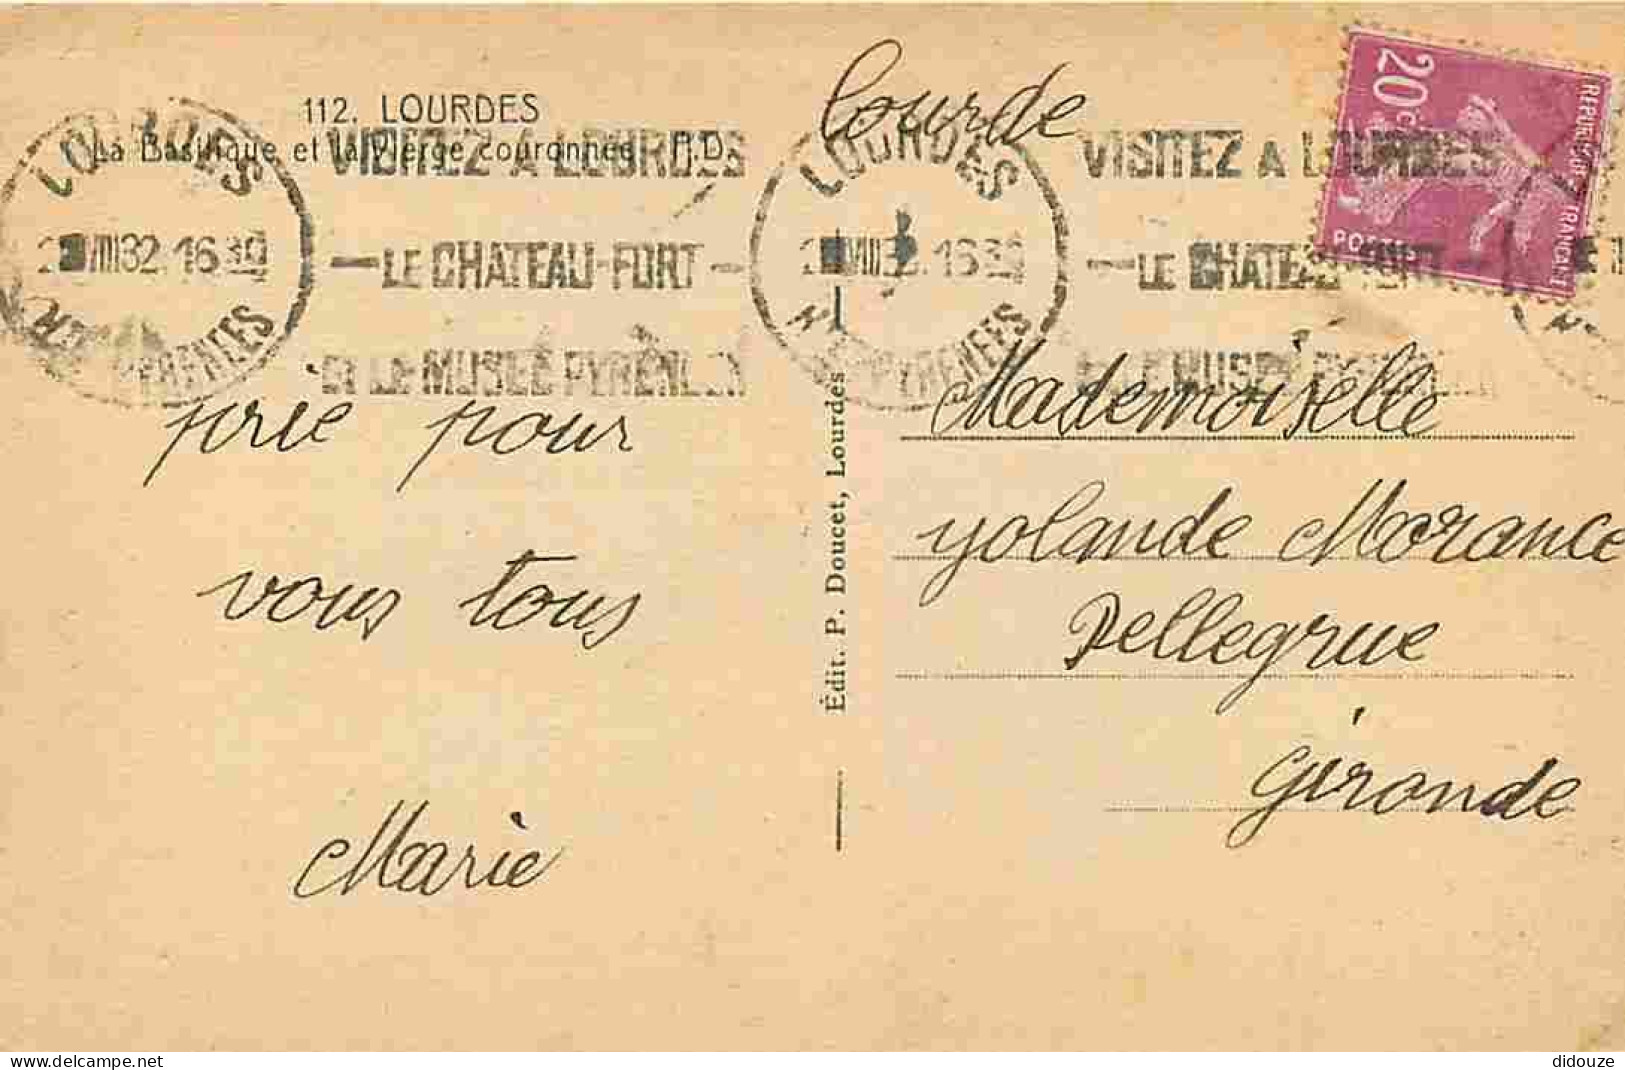 112. LOURDES
La Basilique et la Vierge couronnée P.D.
Lourde
LOURDES
VIII 32 16 30
PYRENEES
VISITEZ A LOURDES
LE CHATEAU-FORT
ET LE MUSEE PYRÉNÉEN
LOURDES
16 30
PYRENEES
VISITEZ A LOURDES
LE CHATEAU-FORT
ET LE MUSEE PYRÉNÉEN
20c
REPUBLIQUE FRANCAISE
POSTES
prie pour
vous tous
Marie
Édit. P. Doucet, Lourdes
Mademoiselle
Yolande Morance
Pellegrue
Gironde
didouze